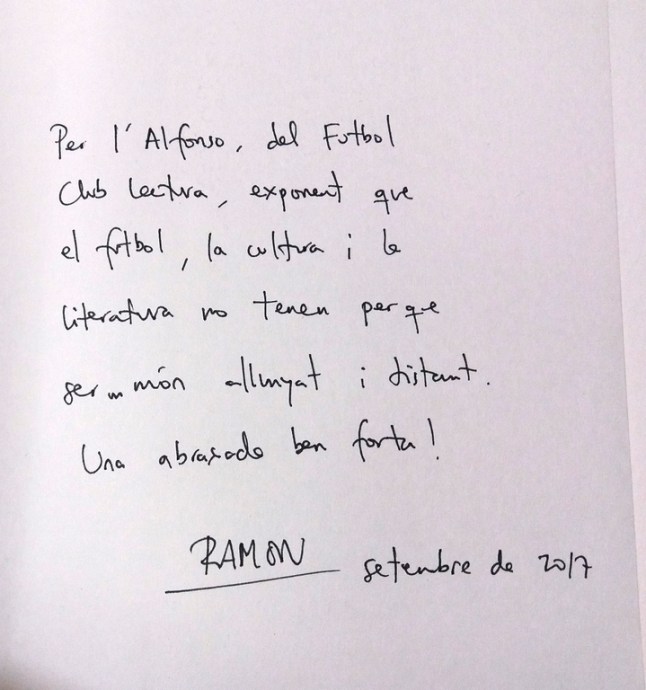 Per l'Alfonso, del Futbol
Club Lectura, exponent que
el futbol, la cultura i la
literatura no tenen perquè
ser un món allunyat i distant.
Una abraçada ben forta!
RAMON setembre de 2017